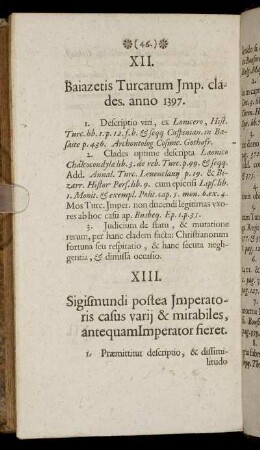 ❋(46.)❋
XII.
Baiazetis Turcarum Jmp. cla-
des. anno 1397.
1. Descriptio viri, ex Lancero, Hist.
Turc. lib. 1. p. 12. f. b. & seqq Cuspinian. in Ba-
saite p. 436. Archontolog Cosmic. Gothofr.
2. Clades optime descripta Laonico
Chalkocondyle lib 3. de reb. Turc. p. 49. & seqq.
Add. Annal. Turc. Leuenclauy p. 19. & Bi-
zarr. Histor Pers. lib. 9. cum epicrisi Laps. lib.
1. Monit. & exempl. Polit. cap. 5. mon. 6. ex. 4.
Mos Turc. Jmper. non ducendi legitimas vxo-
res ab hoc casu ap. Busbeq. Ep. 1. p. 51.
3. Judicium de statu, & mutatione
rerum, per hanc cladem facta: Christianorum
fortuna seu respiratio, & hanc secuta negli-
gentia, & dimissa occasio.
XIII.
Sigismundi postea Jmperato-
ris casus varij & mirabiles,
antequam Imperator fieret.
1. Præmittitur descriptio, & dissimi-
litudo